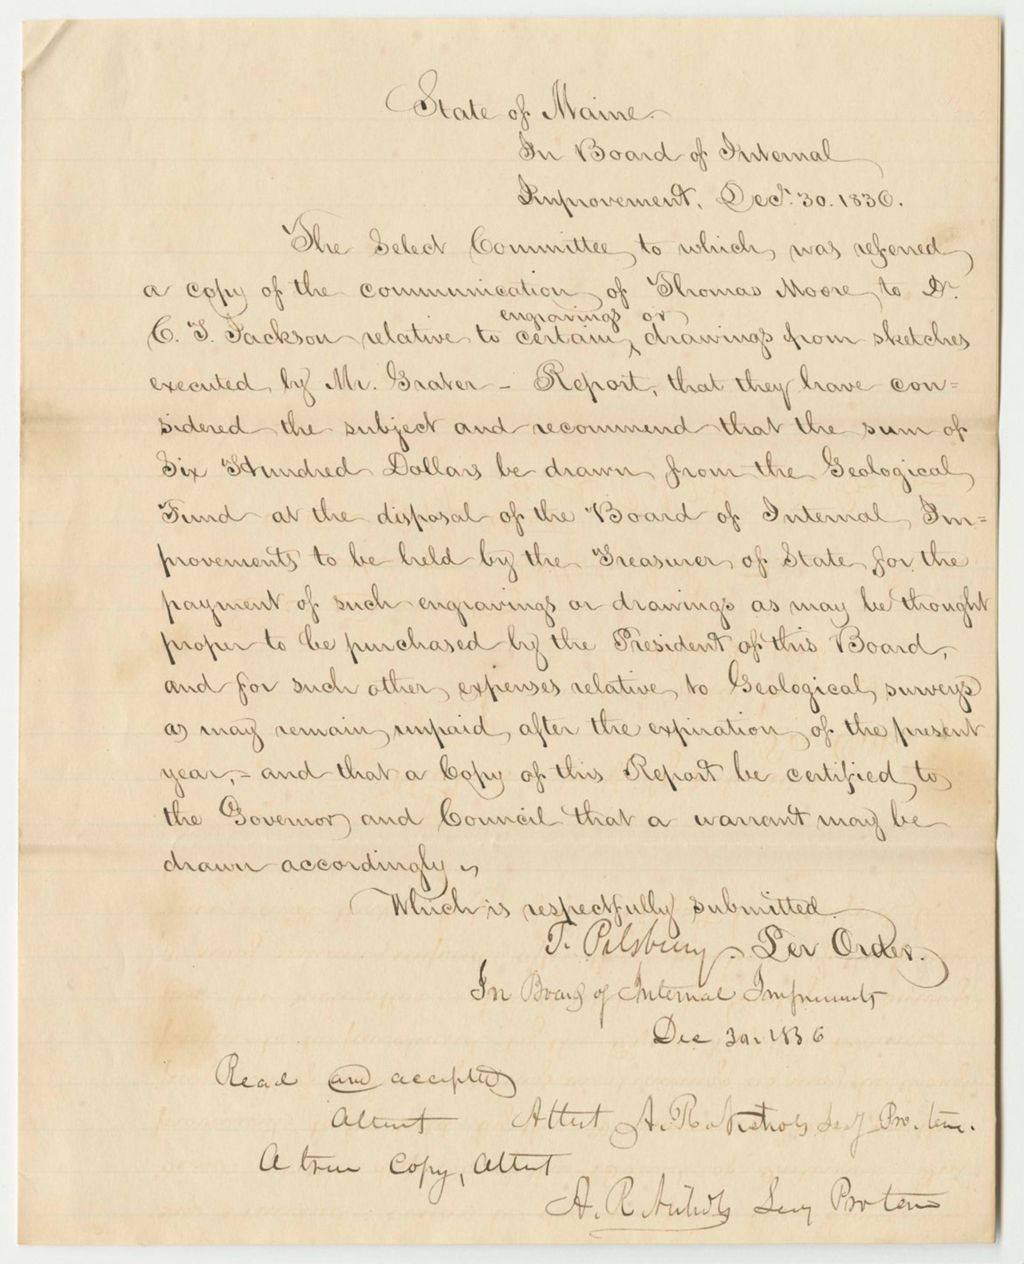 State of Maine.
In Board of Internal
Improvement, Decr. 30. 1836.
The Select Committee to which was referred
a copy of the communication of Thomas Moore to Dr.
engravings or
C. T. Jackson relative to certain ‸ drawings from sketches
executed by Mr. Grater - Report, that they have con=
sidered the subject and recommend that the sum of
Six Hundred Dollars be drawn from the Geological
Fund at the disposal of the Board of Internal Im=
provements to be held by the Treasurer of State for the
payment of such engravings or drawings as may be thought
proper to be purchased by the President of this Board,
and for such other expenses relative to Geological surveys
as may remain unpaid after the expiration of the present
year,- and that a Copy of this Report be certified to
the Governor and Council that a warrant may be
drawn accordingly
Which is respectfully submitted.
T. Pilsbury. Per Order.
In Board of Internal Improvements
Dec 30. 1836
Read and accepted
Attest Attest A. R. Nichols Secy Pro. tem.
A true Copy, Attest
A. R. Nichols Secy Pro tem